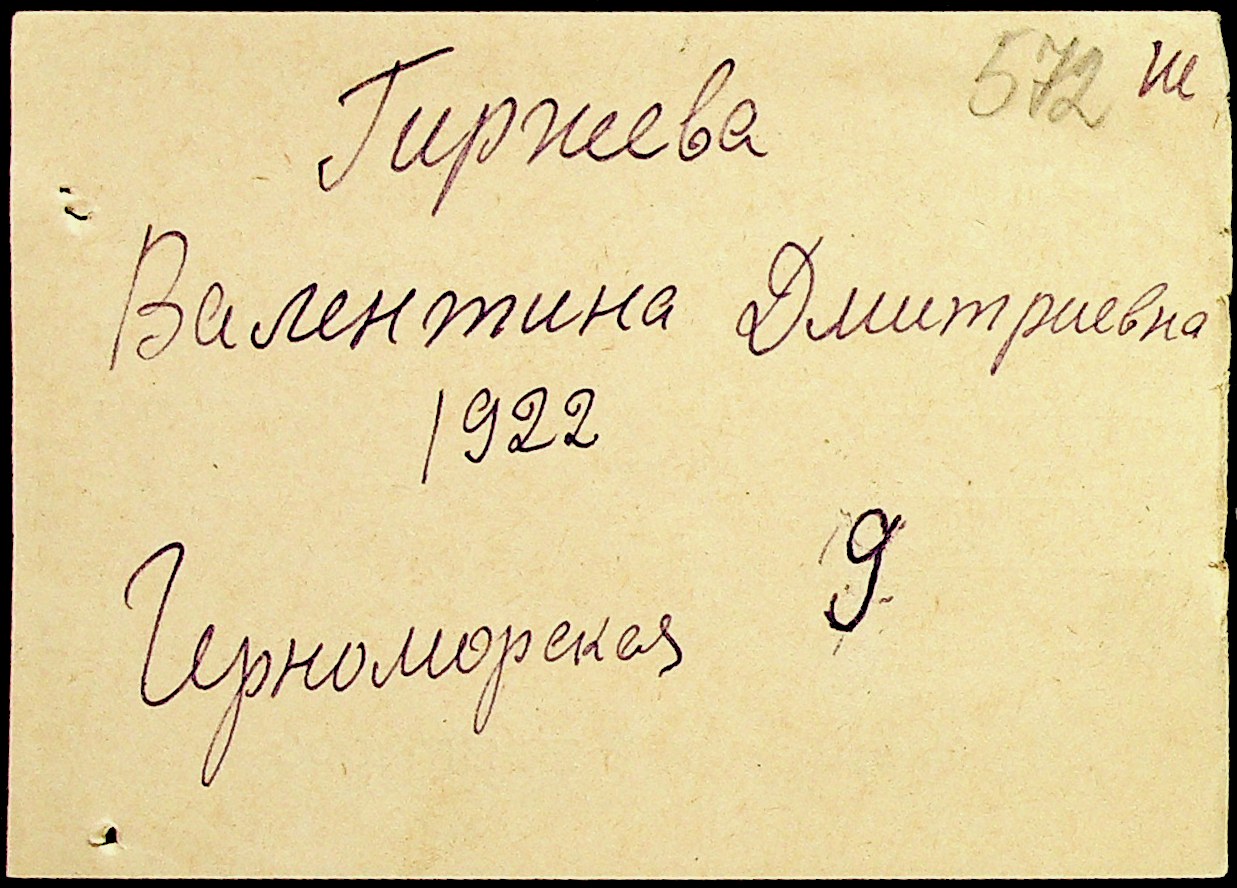 572 не
Гиржева
Валентина Дмитриевна
1922
9
Черноморская